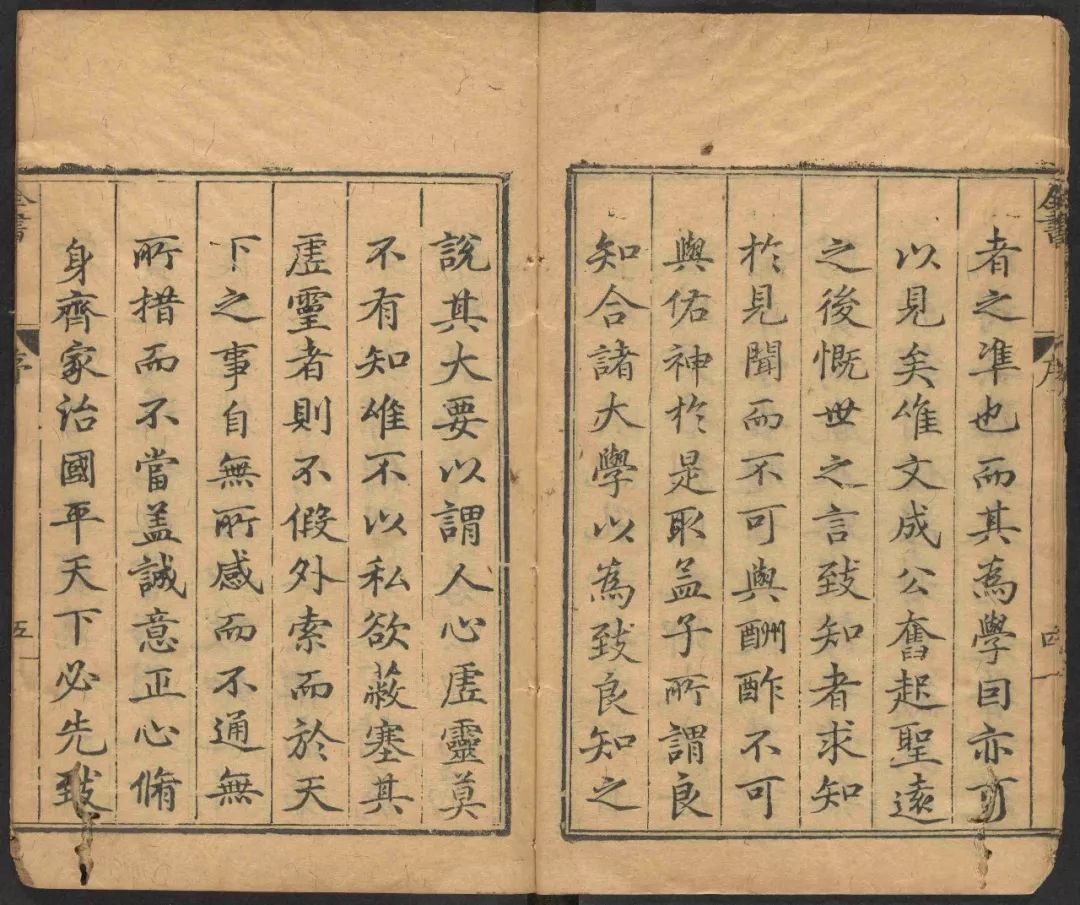 全書 序 四
者之凖也而其為學囙亦可
以見矣惟文成公奮起聖遠
之後慨世之言致知者求知
於見聞而不可與酬酢不可
與佑神於是取孟子所謂良
知合諸大學以為致良知之
說其大要以謂人心虛靈莫
不有知惟不以私欲蔽塞其
虛靈者則不假外索而於天
下之事自無所感而不通無
所措而不當盖誠意正心脩
身齊家治國平天下必先致
全書 序 五